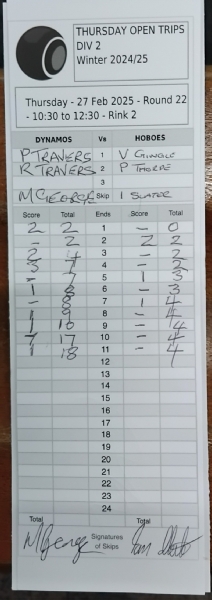 THURSDAY OPEN TRIPS
DIV 2
Winter 2024/25
Thursday - 27 Feb 2025 - Round 22
- 10:30 to 12:30 - Rink 2
DYNAMOS Vs HOBOES
P TRAVERS 1 V GINGLE
R TRAVERS 2 P THORPE
3
M GEORGE Skip I SLATOR
Score Total Ends Score Total
2 2 1 - 0
- 2 2 2 2
2 4 3 - 2
3 7 4 - 2
- 7 5 1 3
1 8 6 - 3
- 8 7 1 4
1 9 8 - 4
1 10 9 - 4
7 17 10 - 4
1 18 11 - 4
12
13
14
15
16
17
18
19
20
21
22
23
24
Total Total
M George Signatures
of Skips